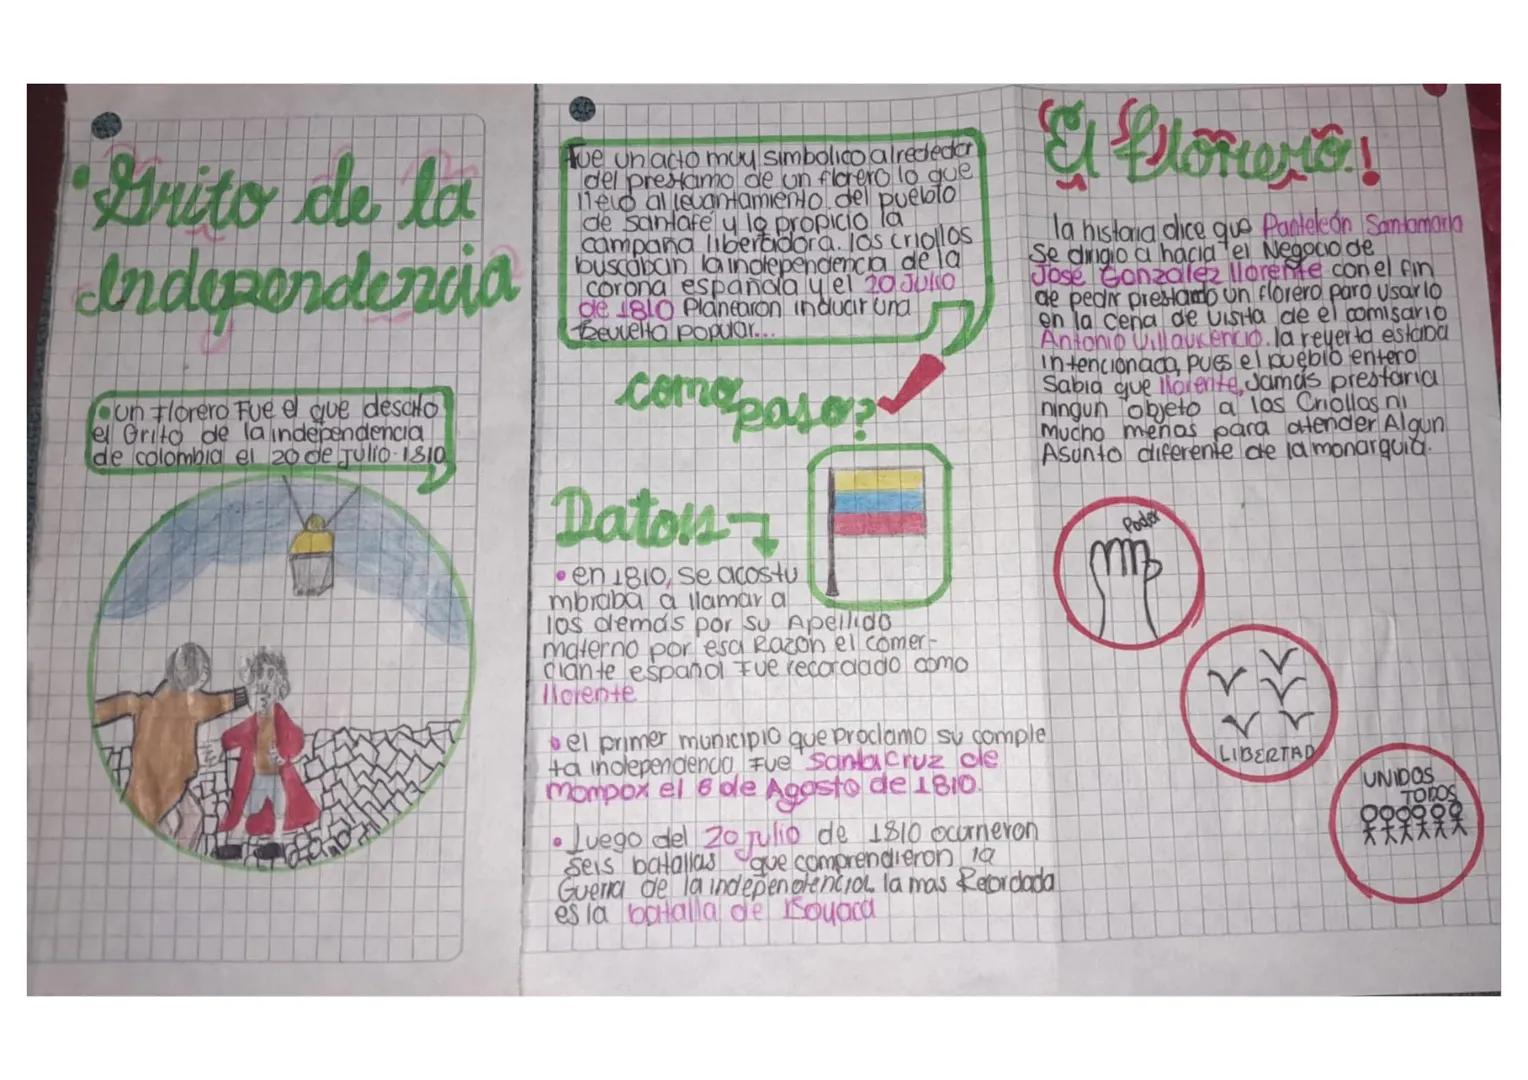 Grito de la
Independencia
un Florero Fue el que desato
el Grito de la independencia
de colombia el 20 de Julio-1810
Fue un acto muy simbolico alrededor
del prestamo de un florero lo que
llevo al levantamiento del pueblo
de santafe y lo propicio la
campaña libertadora. los criollos
buscaban la independencia de la
corona española y el 20 Julio
de 1810 Planearon inducir una
Revuelta popular...
como paso?
Datos
en 1810, se acostu
mbraba a llamar a
los demás por su Apellido
materno por esa Razon el comer-
ciante español Fue recordado como
llorente
el primer municipio que proclamo su comple
ta independencia Fue Santa Cruz de
Mompox el 6 de Agosto de 1810.
Luego del 20 julio de 1810 ocurrieron
seis batallas que comprendieron la
Guerra de la independencia la mas Recordada
es la batalla de Boyaca
El Florero!
la historia dice que Panteleón Santamaria
Se dirigio a hacia el Negocio de
José Gonzalez llorente con el fin
de pedir prestado un florero para usarlo
en la cena de visita de el comisario
Antonio Villavicencio. la reyerta estaba
intencionada, pues el pueblo entero
Sabia que llorente, Jamás prestaria
ningun objeto a los Criollos ni
Mucho menos para atender Algun
Asunto diferente de la monarquia.
Poder
LIBERTAD
UNIDOS
TODOS